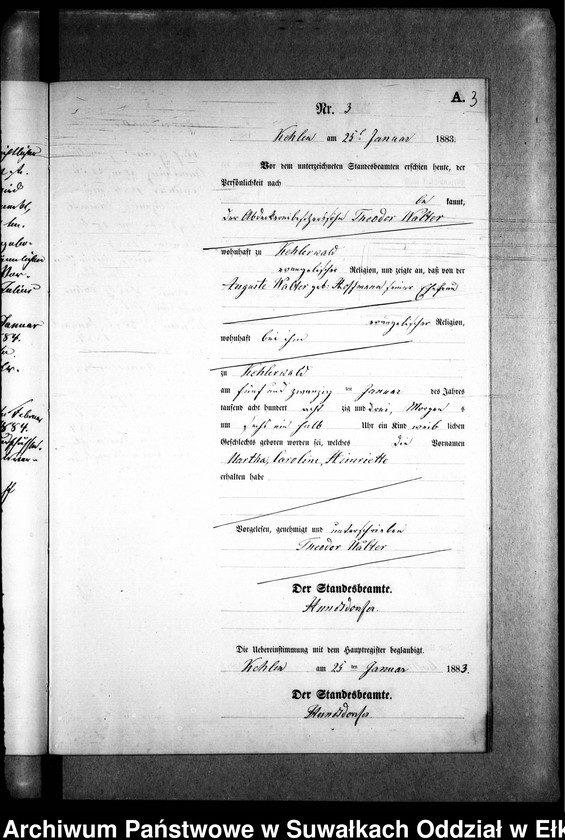 A. 3
Nr. 3
Kehlen am 25t Januar 1883.
Vor dem unterzeichneten Standesbeamten erschien heute, der
Persönlichkeit nach
be kannt,
der Theodor Walter
wohnhaft zu Kehlerwald
evangelischer Religion, und zeigte an, daß von der
Auguste Walter geb. Hoffmann seiner Ehefrau
evangelischer Religion,
wohnhaft bei ihm
zu Kehlerwald
am fünf und zwanzig ten Januar des Jahres
tausend acht hundert acht zig und drei, Morgens
um sechs ein halb Uhr ein Kind weib lichen
Geschlechts geboren worden sei, welches die Vornamen
Martha, Caroline, Henriette
erhalten habe
Vorgelesen, genehmigt und unterschrieben
Theodor Walter
Der Standesbeamte.
Hundsdorfer
Die Uebereinstimmung mit dem Hauptregister beglaubigt.
Kehlen am 25 ten Januar 1883.
Der Standesbeamte.
Hundsdorfer
Januar
84.
Februar
884.
Archiwum Państwowe w Suwałkach Oddział w Ełk